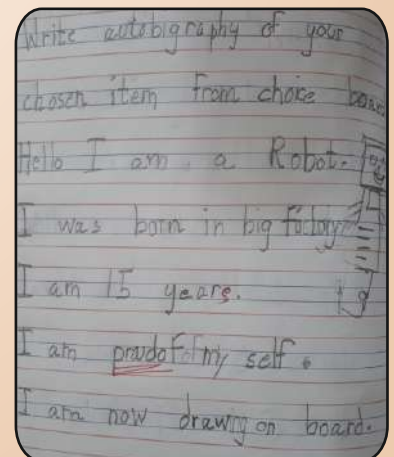 Write autobigraphy of your
chosen item from choice board
Hello I am a Robot.
I was born in big factory
I am 15 years.
I am proudof of my self.
I am now drawing on board.